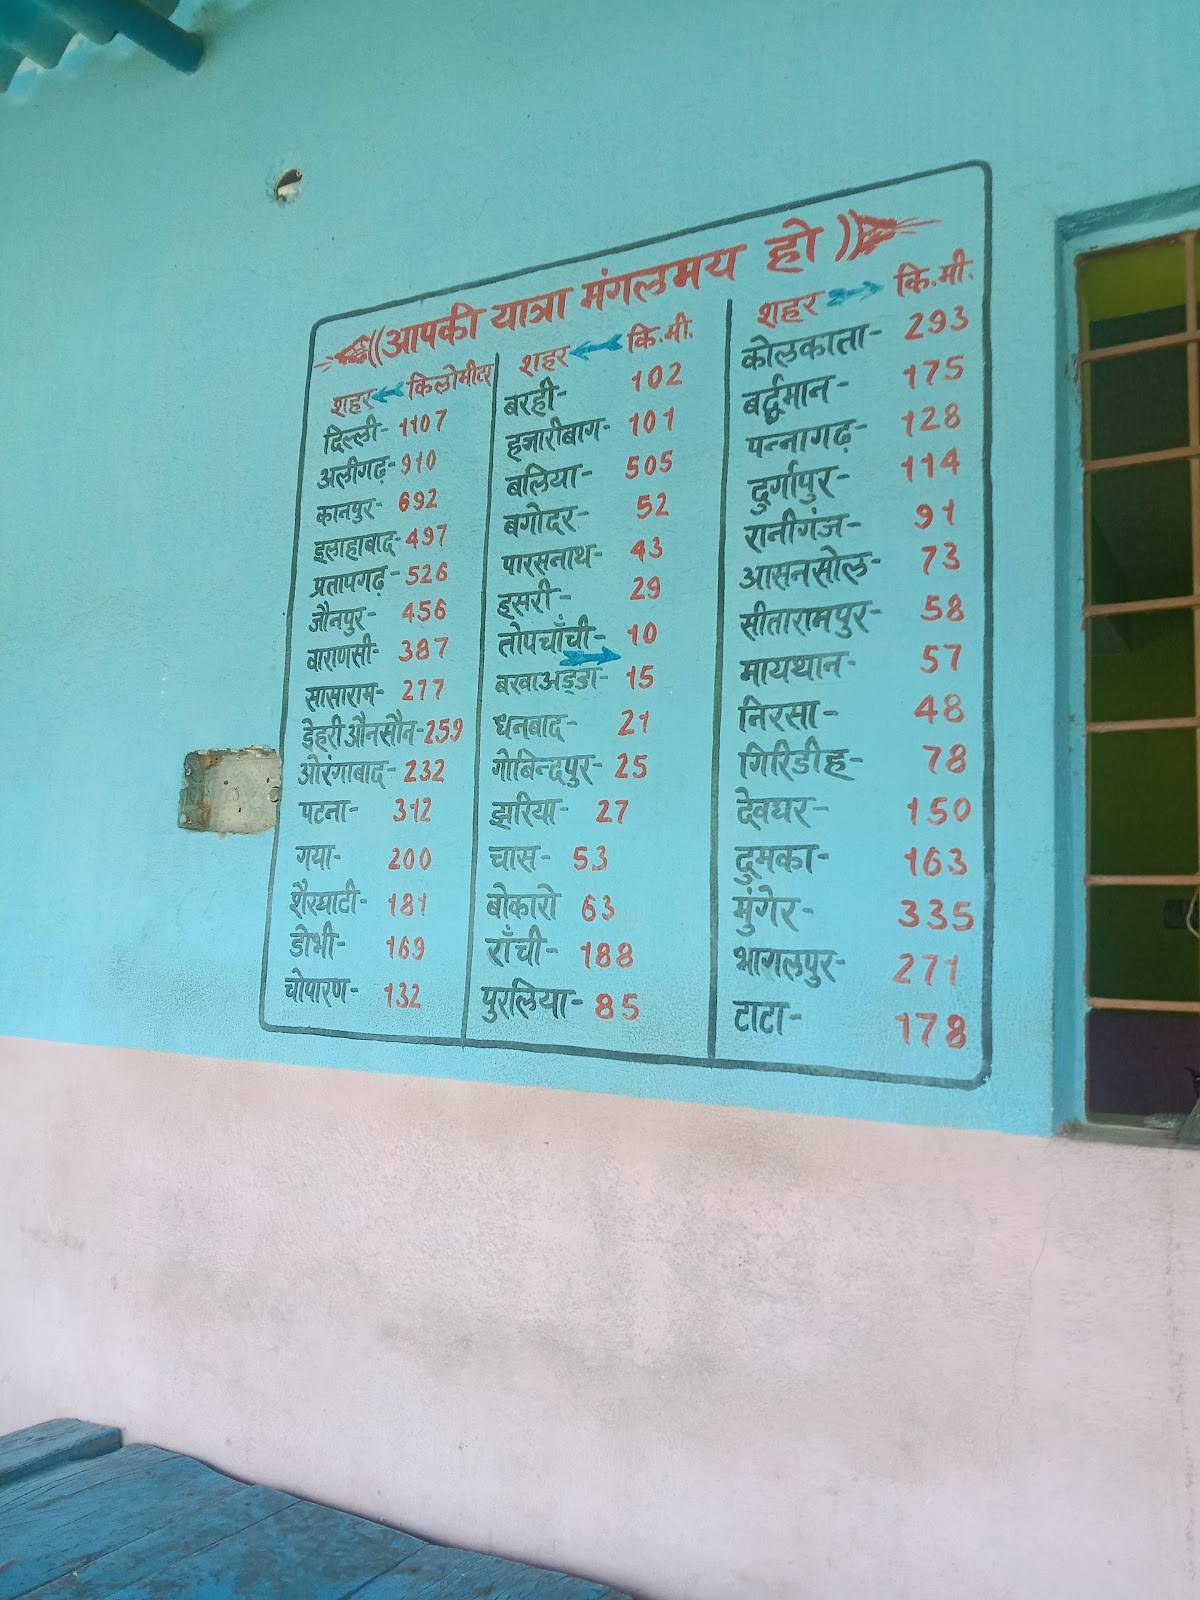 आपकी यात्रा मंगलमय हो
शहर किलोमीटर
दिल्ली- 1107
अलीगढ़- 910
कानपुर- 692
इलाहाबाद- 497
प्रतापगढ़- 526
जौनपुर- 456
वाराणसी- 387
सासाराम- 277
डेहरी औनसौन- 259
ओरंगाबाद- 232
पटना- 312
गया- 200
शैरघाटी- 181
डोभी- 169
चोपारण- 132
शहर कि.मी.
बरही- 102
हजारीबाग- 101
बलिया- 505
बगोदर- 52
पारसनाथ- 43
इसरी- 29
तोपचाँची- 10
बरवाअड्डा- 15
धनबाद- 21
गोबिन्दपुर- 25
झरिया- 27
चास- 53
बोकारो 63
राँची- 188
पुरुलिया- 85
शहर कि.मी.
कोलकाता- 293
बर्द्धमान- 175
पन्नागढ़- 128
दुर्गापुर- 114
रानीगंज- 91
आसनसोल- 73
सीतारामपुर- 58
मायथान- 57
निरसा- 48
गिरिडीह- 78
देवघर- 150
दुमका- 163
मुंगेर- 335
भागलपुर- 271
टाटा- 178